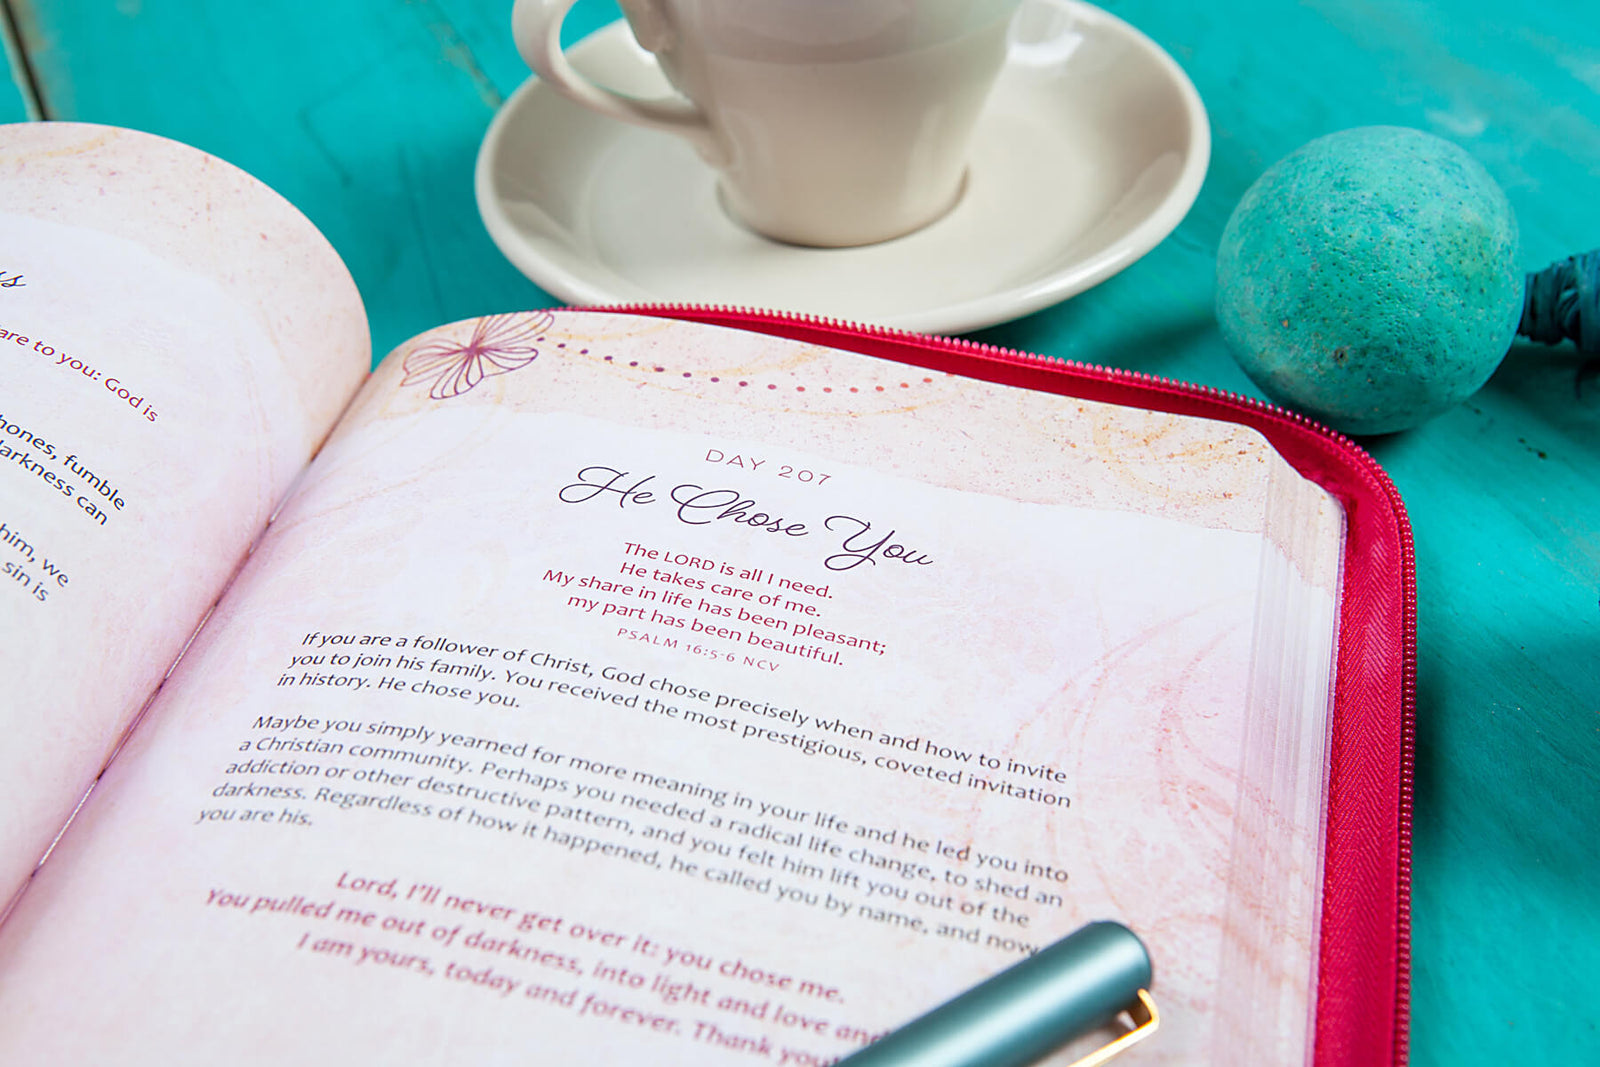 are to you: God is
hones, fumble
darkness can
him, we
sin is
DAY 207
He Chose You
The LORD is all I need.
He takes care of me.
My share in life has been pleasant;
my part has been beautiful.
PSALM 16:5-6 NCV
If you are a follower of Christ, God chose precisely when and how to invite
you to join his family. You received the most prestigious, coveted invitation
in history. He chose you.
Maybe you simply yearned for more meaning in your life and he led you into
a Christian community. Perhaps you needed a radical life change, to shed an
addiction or other destructive pattern, and you felt him lift you out of the
darkness. Regardless of how it happened, he called you by name, and now
you are his.
Lord, I'll never get over it: you chose me.
You pulled me out of darkness, into light and love and
I am yours, today and forever. Thank you!